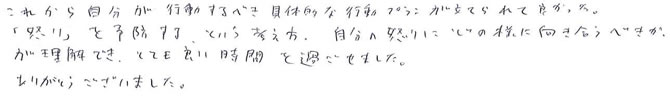 これから自分が行動するべき具体的な行動プランが立てられて良かった。
「怒り」を予防する、という考え方、自分の怒りにどの様に向き合うべきか、
が理解でき、とても良い時間を過ごせました。
ありがとうございました。